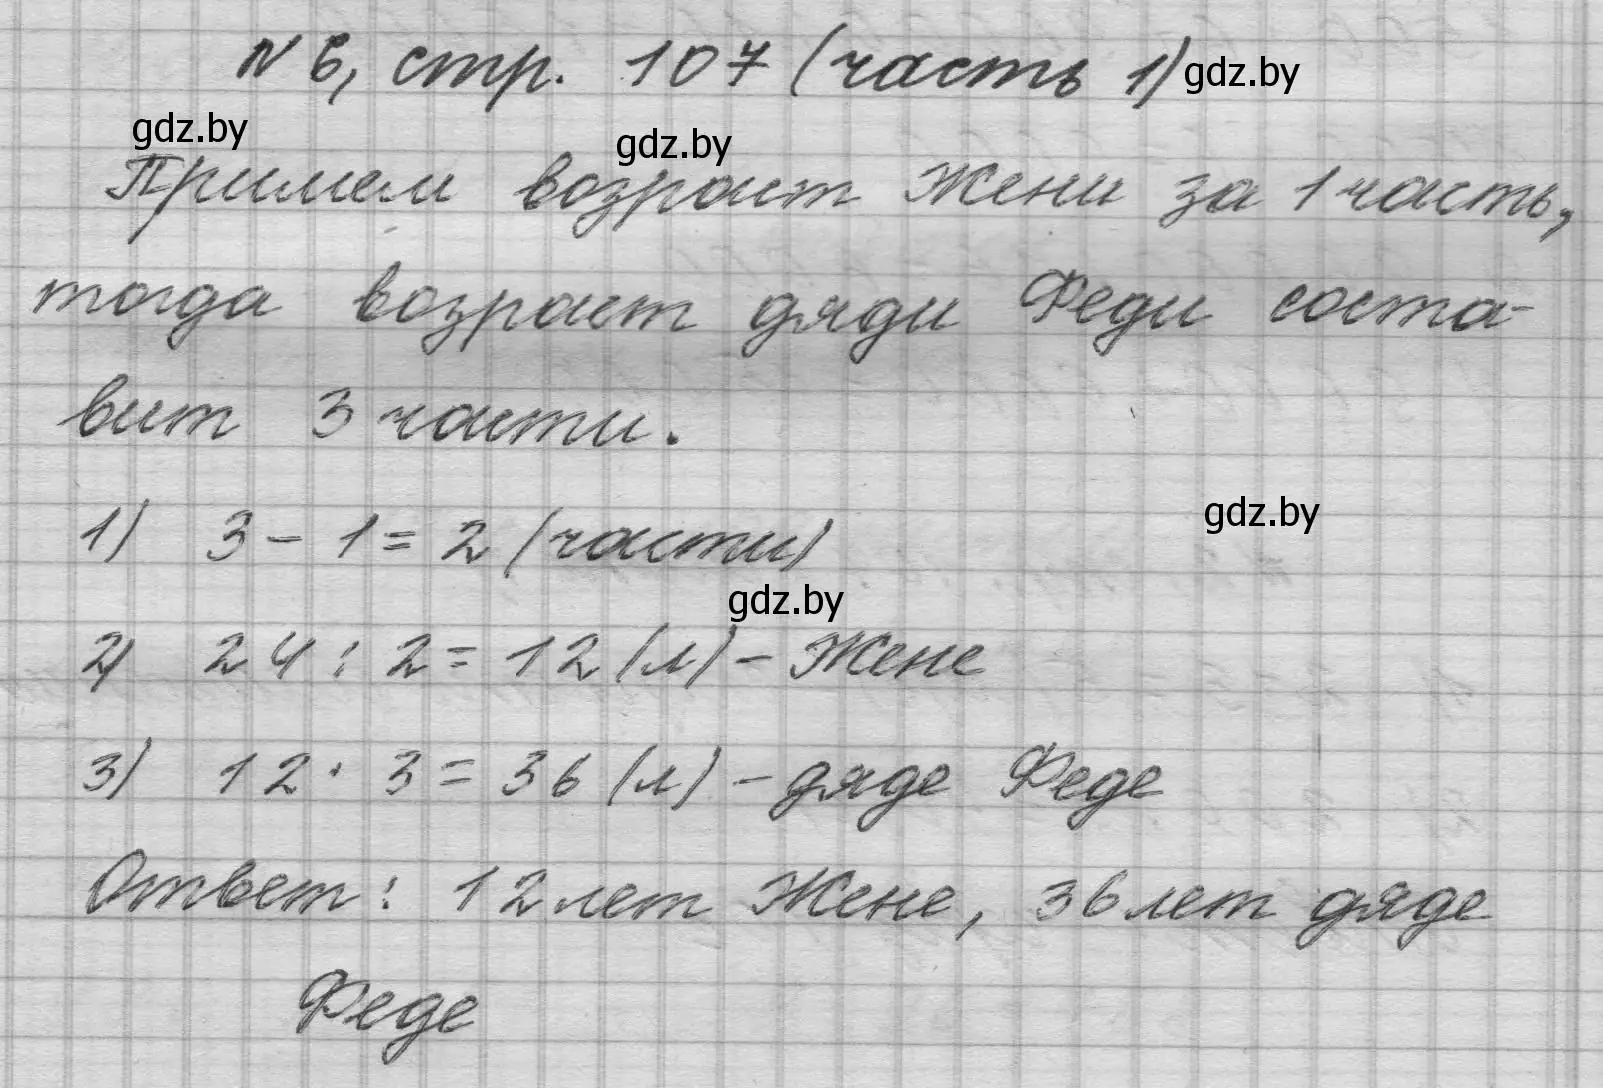 N 6, стр. 107 (часть 1) gdz.by
gdz.by gdz.by
Примем возраст Жени за 1 часть,
тогда возраст дяди Феди соста-
вит 3 части.
gdz.by
1) 3 - 1 = 2 (части)
gdz.by
2) 24 : 2 = 12 (л) - Жене
3) 12 · 3 = 36 (л) - дяде Феде
Ответ: 12 лет Жене, 36 лет дяде
Феде